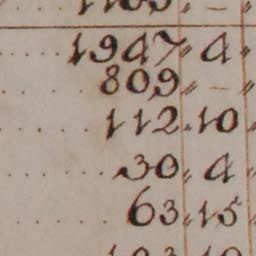 1947 〃 4 〃
809 〃 – 〃
112 . 10
30 〃 4
63 . 15